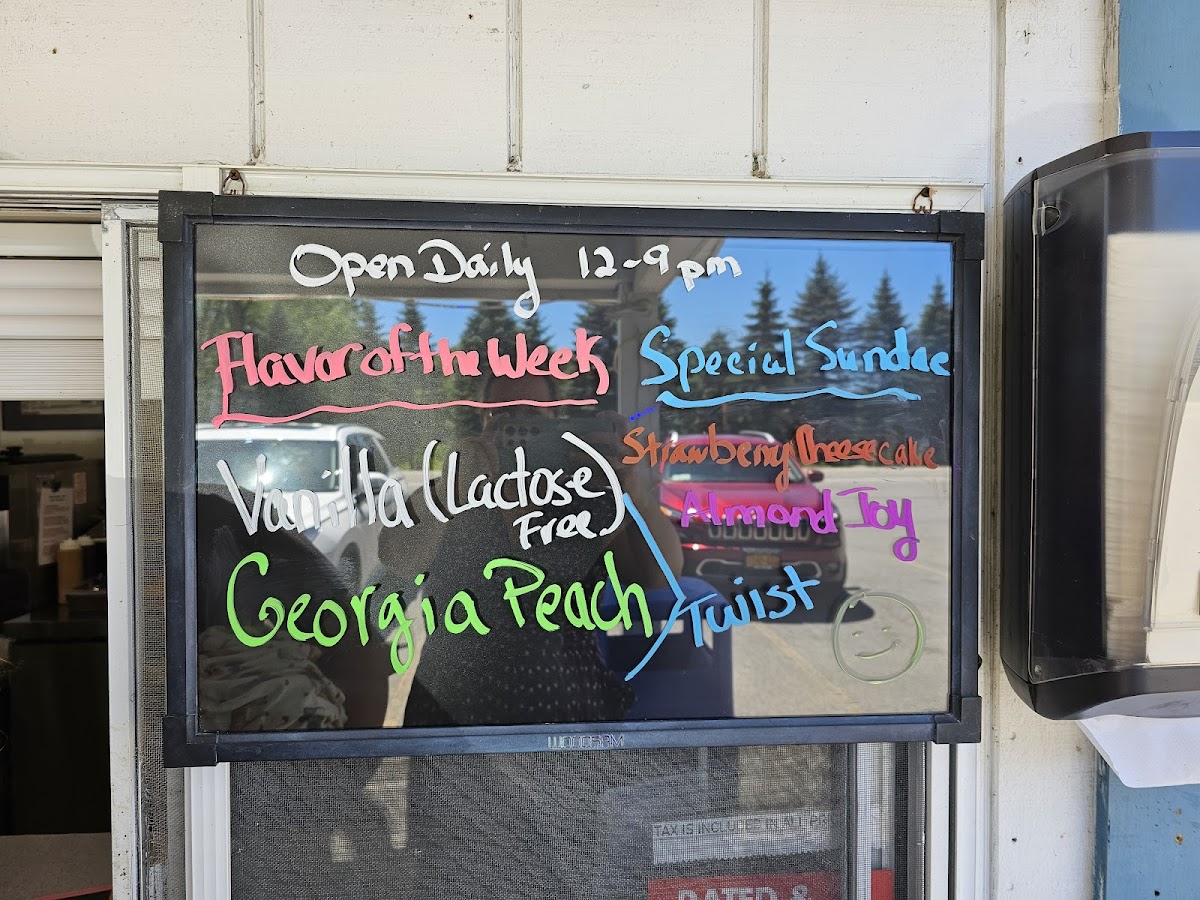 Open Daily 12-9 pm
Flavor of the Week
Special Sundae
Vanilla (Lactose Free)
Georgia Peach
Twist
Strawberry Cheesecake
Almond Joy
WOODGRAM
TAX IS INCLUDED IN ALL PR